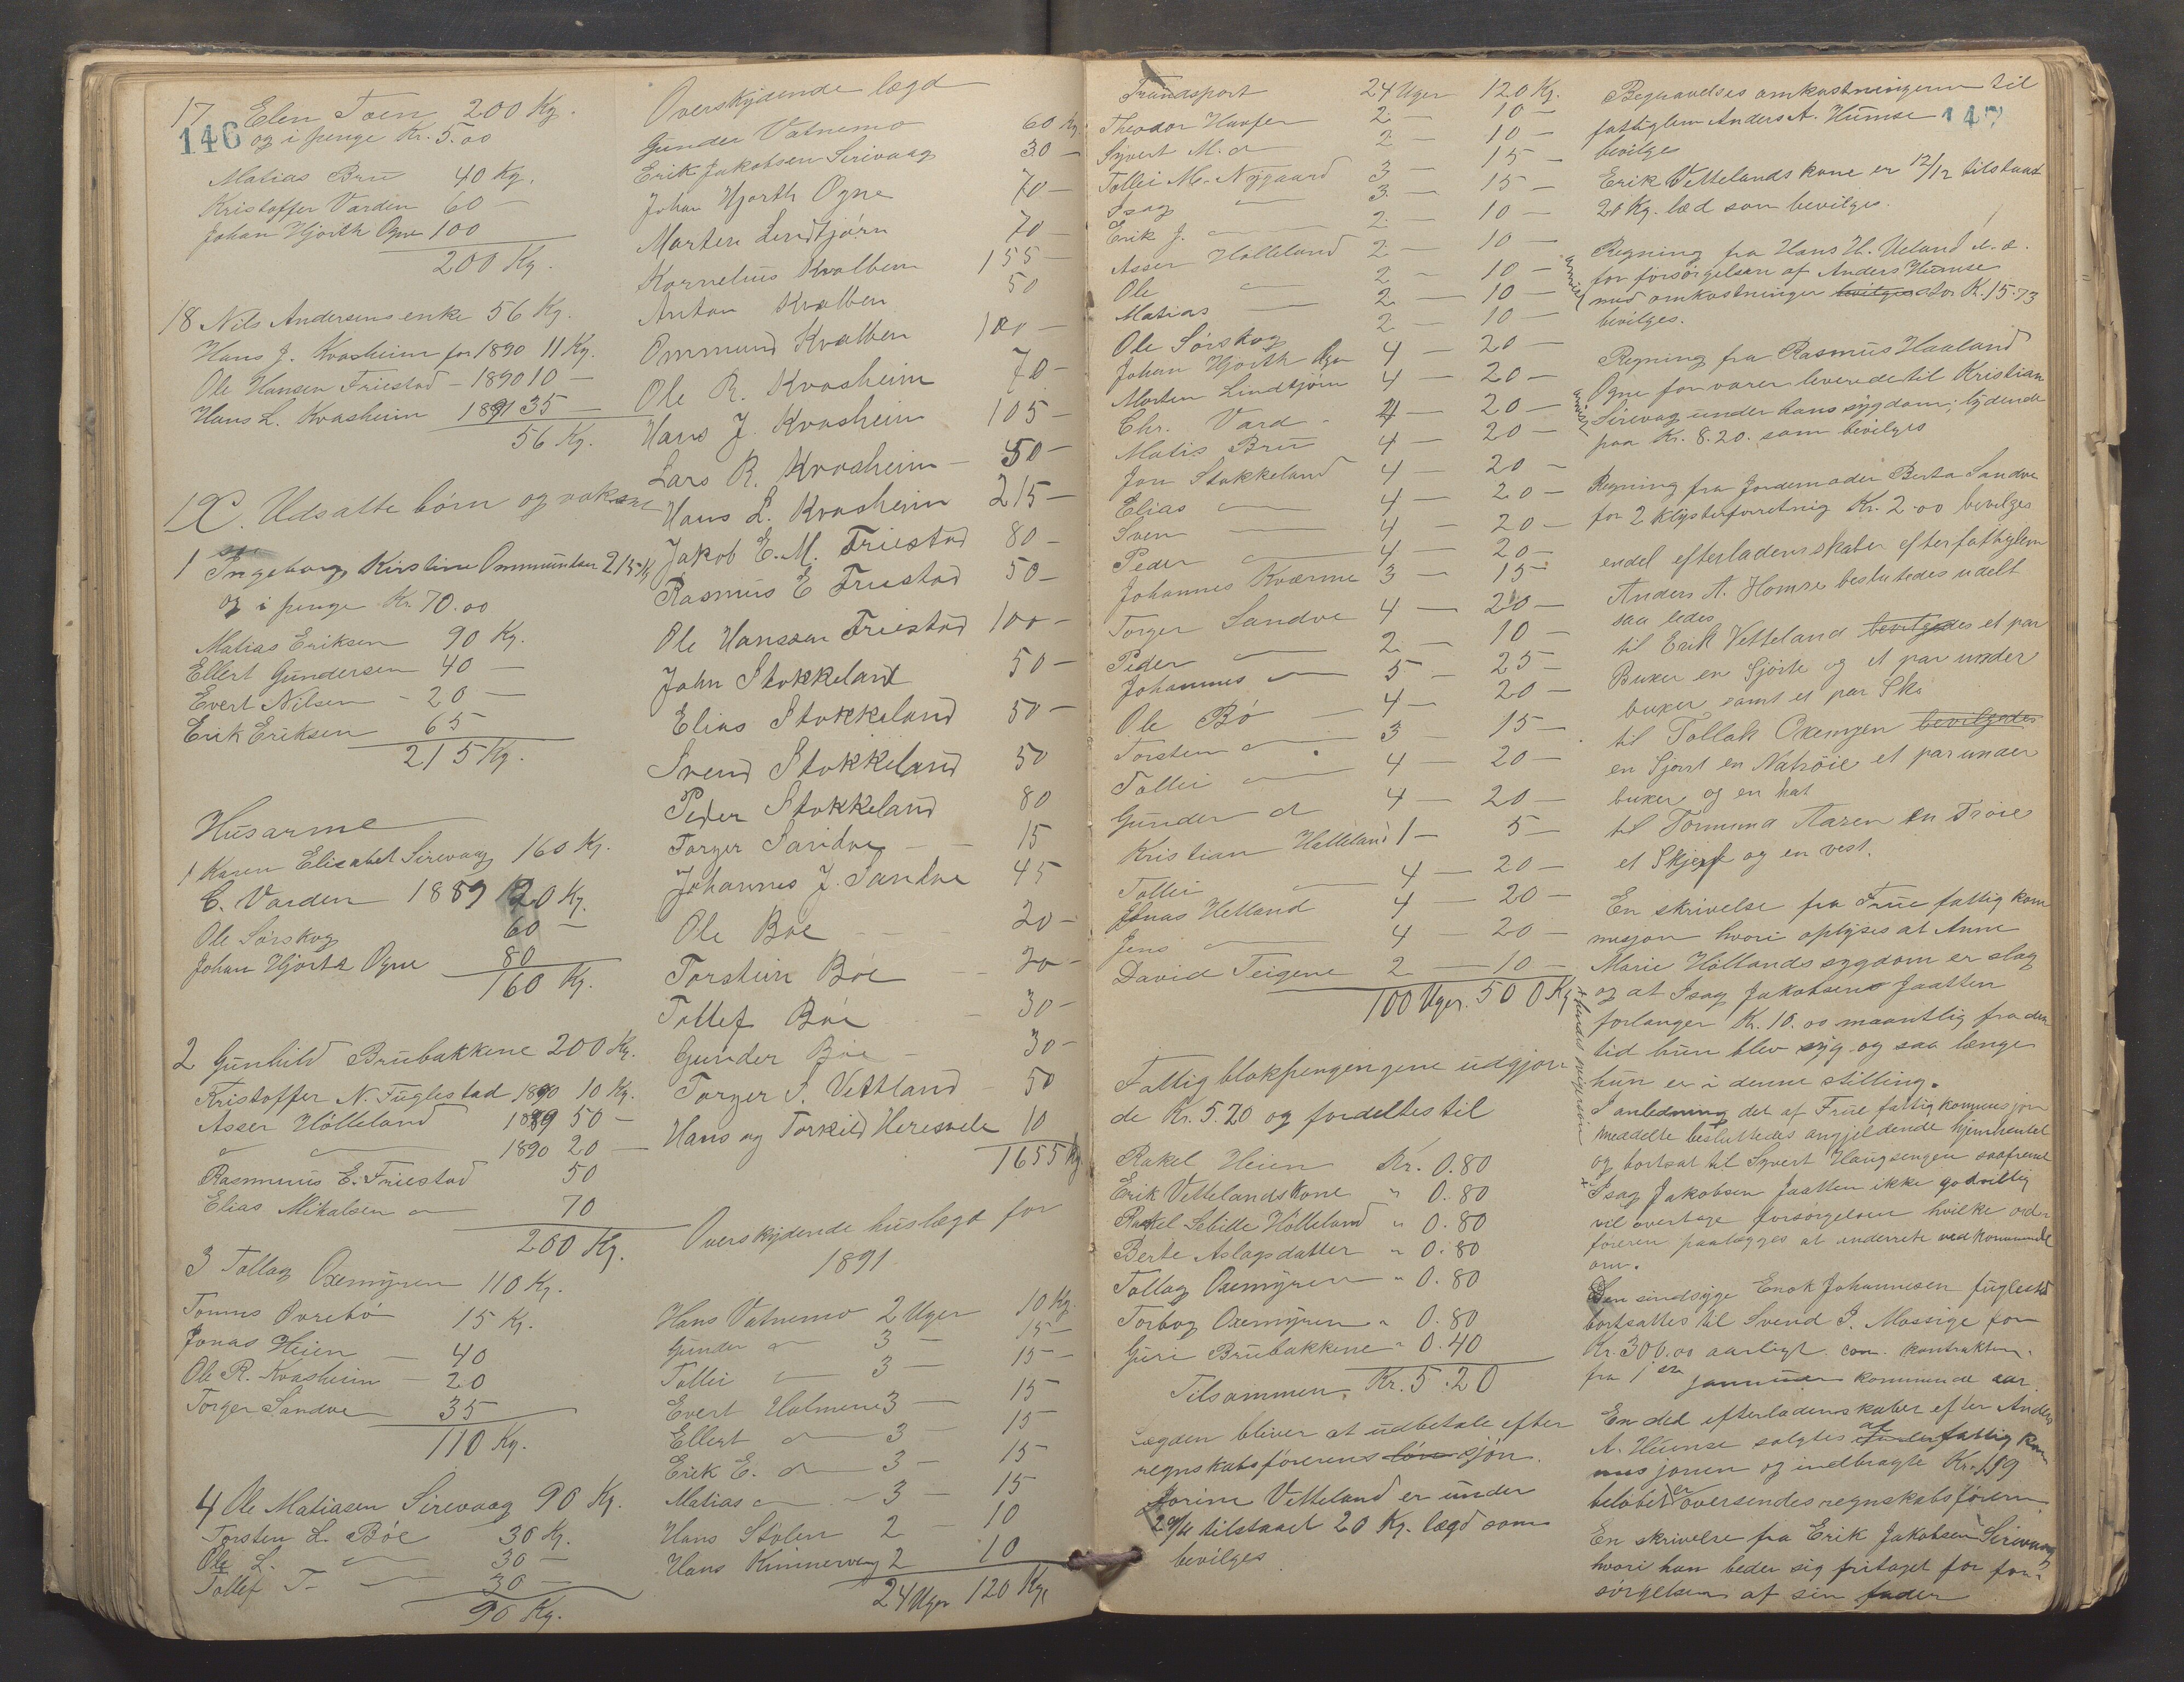 17 Elen Toen 200 Kg.
146 og i penge Kr. 5.00
Matias Bru 40 Kg.
Kristoffer Varden 60 —
Johan Hjorth Ogne 100
200 Kg.
18 Nils Andersens enke 56 Kg.
Hans J. Kvasheim for 1890 11 Kg.
Ole Hansen Friestad – 1890 10 —
Hans L. Kvasheim 1891 35 —
56 Kg.
Udsatte börn og voksne
1 Ingeborg Kirstine Ommundsen 215 Kg
og i penge Kr. 70.00
Matias Eriksen 90 Kg.
Ellert Gundersen 40 —
Evert Nilsen – 20 —
Erik Eriksen 65
215 Kg.
Husarme
1 Karen Elisabet Sirevaag 160 Kg.
C. Varden 1889 20 Kg.
Ole Sörskog 60 —
Johan Hjorth Ogne 80
160 Kg.
2 Gunhild Brubakkene 200 Kg.
Kristoffer N. Fuglestad 1890 10 Kg.
Asser Hölleland 1889 50 —
— 1890 20 —
Rasmus E. Friestad 50
Elias Mikalsen 70
200 Kg.
3 Tollag Oxemyren 110 Kg.
Tönnes Ovrebö 15 Kg.
Jonas Heien — 40
Ole R. Kvasheim — 20
Torger Sandve 35
110 Kg.
4 Ole Matiasen Sirevaag 90 Kg.
Torsten L. Böe 30 Kg.
Ole L. — 30 —
Tollef T. — 30 —
90 Kg.
Overskydende lægd
Gunder Vatnemo 60 Kg.
Erik Jakobsen Sirevaag 30 —
Johan Hjorth Ogne 70 —
Morten Lindtjörn 70 —
Kornelius Kvalben 155 —
Anton Kvalben 50
Ommund Kvalben 100 —
Ole R. Kvasheim 70 —
Hans J. Kvasheim 105 —
Lars R. Kvasheim — 50 —
Hans L. Kvasheim 215 —
Jakob E. M. Friestad 80 —
Rasmus E Friestad 50 —
Ole Hanssen Friestad 100 —
John Stokkeland 50 —
Elias Stokkeland 50 —
Svend Stokkeland 50
Peder Stokkeland 80
Torger Sandve — — 15
Johannes J. Sandve 45
Ole Böe — — 20 —
Torstein Böe — 20 —
Tollef Böe — 30 —
Gunder Böe — 30 —
Torger S. Vettland — 50
Hans og Torkild Heresvele 10
1655 Kg.
Overskydende huslægd for
1891
Hans Vatnemo 2 Uger 10 Kg.
Gunder — 3 — 15 —
Tollei — 3 — 15 —
Evert Holmene 3 — 15
Ellert — 3 — 15
Erik E. — 3 — 15
Matias — 3 — 15
Hans Stölen 2 — 10
Hans Kinnervey 2 10
24 Uger 120 Kg.
Transport 24 Uger 120 Kg.
Theodor Havsen 2 — 10 —
Syvert M. d 2 — 10 —
Tollei M. Nygaard 3 — 15 —
Isag — 3 — 15 —
Erik J. — 2 — 10 —
Asser Holleland 2 — 10 —
Ole — 2 — 10 —
Matias — 2 — 10 —
Ole Sörskog 2 — 10 —
Johan Hjorth Ogn 4 — 20 —
Morten Lindtjörn 4 — 20 —
Chr. Vard – 4 — 20 —
Matis Bru 4 — 20 —
Jon Stokkeland 4 — 20 —
Elias — 4 — 20 —
Sven — 4 — 20 —
Peder — 4 — 20 —
Johannes Kværme 3 — 15 —
Torger Sandve 4 — 20 —
Peder — 2 — 10 —
Johannes — 5 — 25 —
Ole Bö — 4 — 20 —
Torsten — 3 — 15 —
Tollei — 4 — 20 —
Gunder d 4 — 20 —
Kristian Helleland 1 — 5 —
Tollei — 4 — 20 —
Jonas Helland 4 — 20 —
Jens — 4 — 20 —
David Teigene 2 — 10 —
100 Uger. 500 Kg
Fattigblokpengengene udgjor
de Kr. 5.20 og fordeltes til
Rakel Heien Kr. 0.80
Erik Vettelands kone " 0.80
Rakel Sebille Hölleland " 0.80
Berte Aslagsdatter " 0.80
Tollag Oxemyren " 0.80
Torbog Oxemyren " 0.80
Guri Brubakkene " 0.40
Tilsammen Kr. 5.20
Lægden bliver at udbetale efter
regnskabsförerens sjön.
Jorine Vetteland er under
29/11 tilstaaet 20 Kg. lægd som
bevilges
Begravelses omkostningerne til
fattiglem Anders A. Humse 147
bevilges
Erik Vettelands kone er 12/12 tilstaaet
20 Kg. læd som bevilges.
Regning fra Hans H. Ueland m. o.
for forsörgelsen af Anders Humse
med omkostninger bevilges stor Kr. 15.73
bevilges.
Regning fra Rasmus Haaland
Ogne for varer leverede til Kristian
Sirevag under hans sygdom; lydende
paa Kr. 8.20. som bevilges
Regning fra Jordemoder Berta Sandve
for 2 Klysterforretnig Kr. 2.00 bevilges
endel efterladenskaber efter fattiglem
Anders A. Homse beslutedes udelt
saa ledes
til Erik Vetteland bevilgedes et par
Buxer en Sjorte og et par under
buxer samt et par Sko
til Tollak Oxemyren bevilgedes
en Sjort en Natröie et par under
buxer og en hat
til Tormund Aasen en Tröie
et Skjerf og en vest.
En skrivelse fra Frue fattig kom
mesjon hvori oplyses at Anne
Marie Höllands sygdom er slag
og at Isag Jakobsens Jaatten
forlanger Kr. 10.00 maantlig fra den
tid hun blev syg og saa længe
hun er i denne stilling.
I anledning det af Frue fattig kommisjon
meddelte besluttedes angjeldende hjemhentet
og bortsat til Syvert Haugsengen saafremt
Isag Jakobsen Jaatten ikke godvillig
vil overtage forsörgelsen hvilke ord
föreren paalægges at underrete vedkommende
om.
Den sindsyge Enok Johannesen Fuglestad
bortsattes til Svend J. Mossige for
Kr. 300.00 aarligt. con. kontrakten.
fra 1ste januuar kommende aar.
En del efterladenskaber efter Anders
A. Humse solgtes af fattig kom
mis jonen og indbragte Kr. 1.89
belöbet oversendes regnskabsföreren.
En skrivelse fra Erik Jakobsen Sirevaag
hvori han beder sig fritaget for for-
sörgelsen af sin fader